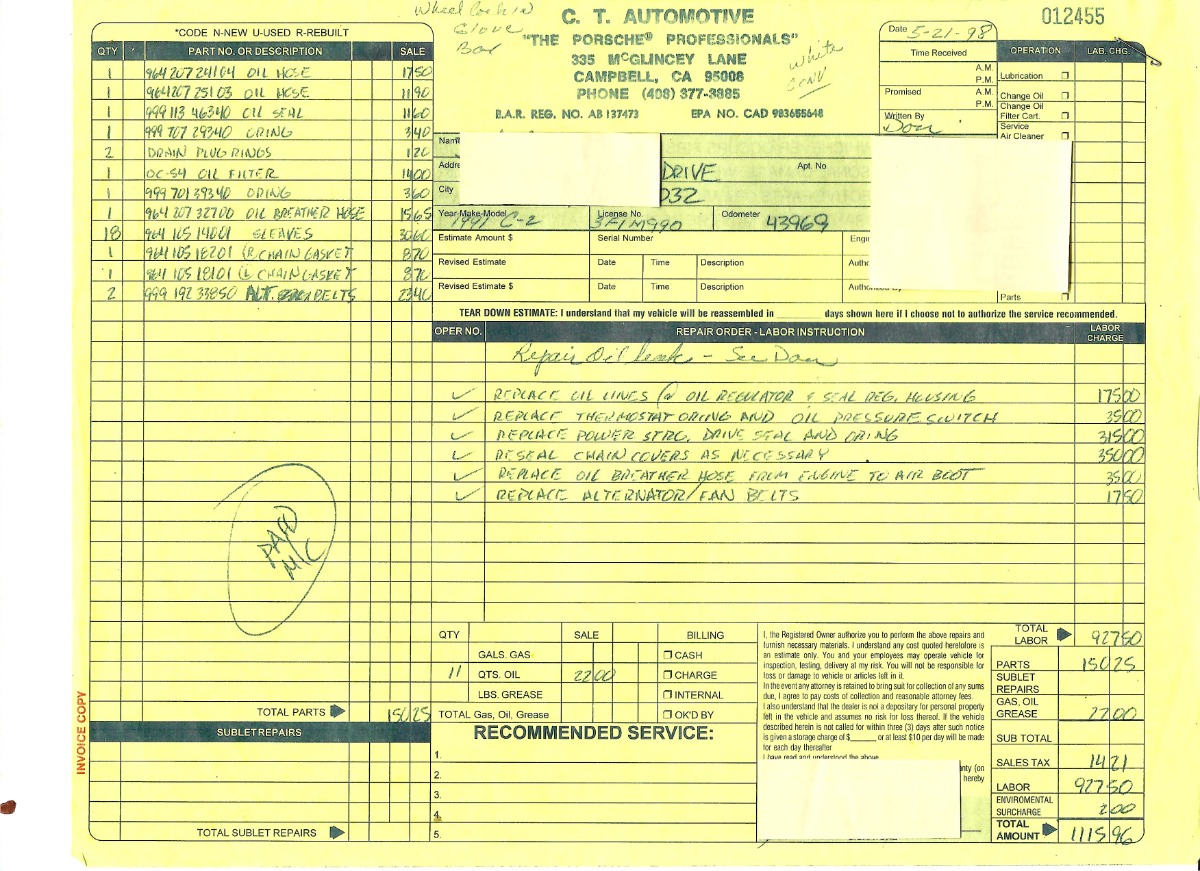 Wheel Lock in
Glove
Box
C. T. AUTOMOTIVE
"THE PORSCHE® PROFESSIONALS"
335 McGLINCEY LANE
CAMPBELL, CA 95008
PHONE (408) 377-3885
B.A.R. REG. NO. AB 137473 EPA NO. CAD 983655648
White
CONV
012455
Date 5-21-98
Time Received
A.M.
P.M.
Promised A.M.
P.M.
Written By
Don
OPERATION LAB. CHG.
Lubrication
Change Oil
Change Oil
Filter Cart.
Service
Air Cleaner
Parts
*CODE N-NEW U-USED R-REBUILT
QTY PART NO. OR DESCRIPTION SALE
1 964 207 241 04 OIL HOSE 17 50
1 964 207 251 03 OIL HOSE 11 90
1 999 113 463 40 OIL SEAL 11 60
1 999 707 293 40 ORING 3 40
2 DRAIN PLUG RINGS 1 20
1 OC-54 OIL FILTER 14 00
1 999 701 393 40 ORING 3 60
1 964 207 327 00 OIL BREATHER HOSE 15 65
18 964 105 140 01 SLEAVES 30 60
1 964 105 182 01 (R CHAIN GASKET 8 70
1 964 105 181 01 (L CHAIN GASKET 8 70
2 999 192 338 50 ALT. BELTS 23 40
Name
Addre
DRIVE
Apt. No
City
032
Year-Make-Model 1991 C-2 License No. 3FIM990 Odometer 43969
Estimate Amount $ Serial Number Engi
Revised Estimate Date Time Description Autho
Revised Estimate $ Date Time Description Author
TEAR DOWN ESTIMATE: I understand that my vehicle will be reassembled in ________ days shown here if I choose not to authorize the service recommended.
OPER NO. REPAIR ORDER - LABOR INSTRUCTION LABOR CHARGE
Repair Oil leak - See Don
✓ REPLACE OIL LINES @ OIL REGULATOR & SEAL REG. HOUSING 175 00
✓ REPLACE THERMOSTAT ORING AND OIL PRESSURE SWITCH 35 00
✓ REPLACE POWER STRG. DRIVE SEAL AND ORING 315 00
✓ RESEAL CHAIN COVERS AS NECESSARY 350 00
✓ REPLACE OIL BREATHER HOSE FROM ENGINE TO AIR BOOT 35 00
✓ REPLACE ALTERNATOR/FAN BELTS 17 50
PAID
M/C
TOTAL PARTS 150 25
SUBLET REPAIRS
TOTAL SUBLET REPAIRS
INVOICE COPY
QTY SALE BILLING
GALS. GAS CASH
11 QTS. OIL 22 00 CHARGE
LBS. GREASE INTERNAL
TOTAL Gas, Oil, Grease OK'D BY
RECOMMENDED SERVICE:
1.
2.
3.
4.
5.
I, the Registered Owner authorize you to perform the above repairs and
furnish necessary materials. I understand any cost quoted heretofore is
an estimate only. You and your employees may operate vehicle for
inspection, testing, delivery at my risk. You will not be responsible for
loss or damage to vehicle or articles left in it.
In the event any attorney is retained to bring suit for collection of any sums
due, I agree to pay costs of collection and reasonable attorney fees.
I also understand that the dealer is not a depositary for personal property
left in the vehicle and assumes no risk for loss thereof. If the vehicle
described herein is not called for within three (3) days after such notice
is given a storage charge of $______ or at least $10 per day will be made
for each day thereafter
I have read and understand the above
nty (on
hereby
TOTAL LABOR 927 50
PARTS 150 25
SUBLET REPAIRS
GAS, OIL GREASE 22 00
SUB TOTAL
SALES TAX 14 21
LABOR 927 50
ENVIROMENTAL SURCHARGE 2 00
TOTAL AMOUNT 1115 96